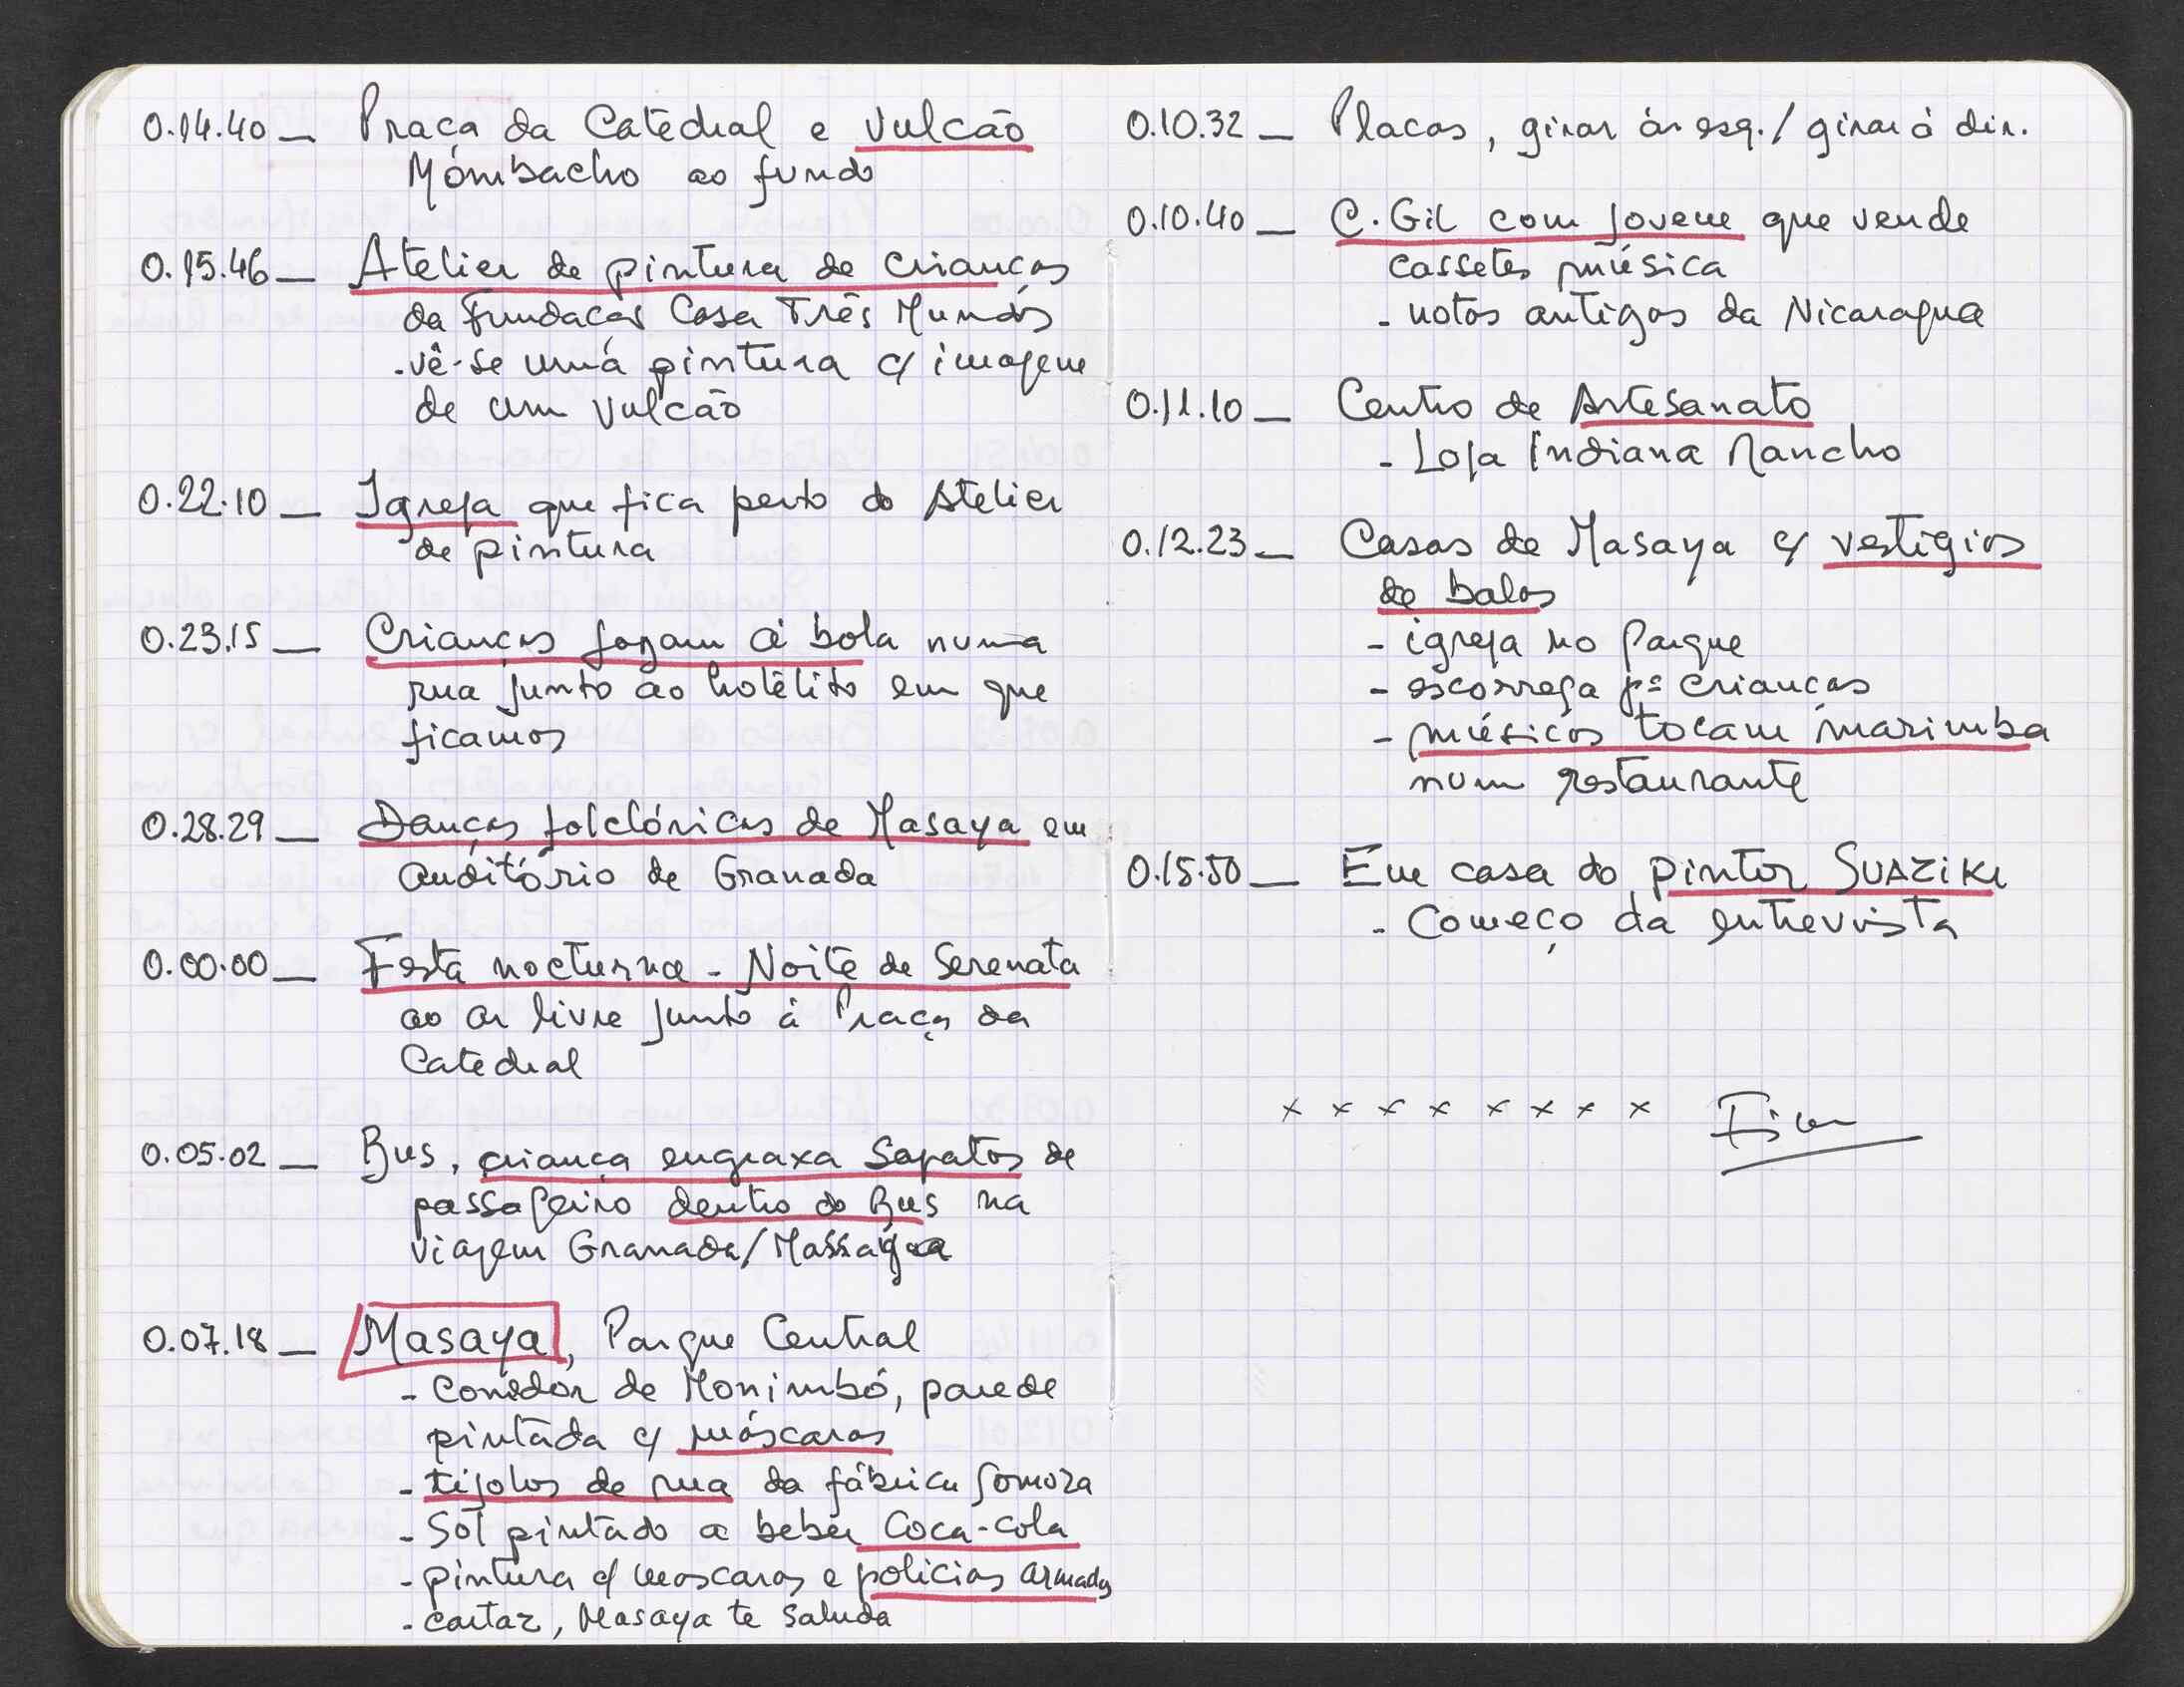 0.14.40 — Praça da Catedral e Vulcão
Mombacho ao fundo
0.15.46 — Atelier de pintura de crianças
da Fundação Casa Três Mundos
- vê-se uma pintura c/ imagem
de um vulcão
0.22.10 — Igreja que fica perto do Atelier
de pintura
0.23.15 — Crianças jogam à bola numa
rua junto ao hotelito em que
ficamos
0.28.29 — Danças folclóricas de Masaya em
auditório de Granada
0.00.00 — Festa nocturna - Noite de Serenata
ao ar livre junto à Praça da
Catedral
0.05.02 — Bus, criança engraxa sapatos de
passageiro dentro do Bus na
viagem Granada/Massaya
0.07.18 — Masaya, Parque Central
- Comedor de Monimbó, parede
pintada c/ máscaras
- tijolos de rua da fábrica Somoza
- Sol pintado a beber Coca-Cola
- pintura c/ mascaras e policias armados
- cartaz, Masaya te saluda
0.10.32 — Placas, girar à esq. / girar à dir.
0.10.40 — C. Gil com jovem que vende
cassetes música
- notas antigas da Nicaragua
0.11.10 — Centro de Artesanato
- Loja Indiana Rancho
0.12.23 — Casas de Masaya c/ vestigios
de balas
- igreja no Parque
- escorrega pª crianças
- músicos tocam marimba
num restaurante
0.15.50 — Em casa do pintor
- Começo da entrevista
x x x x x x x x Fim